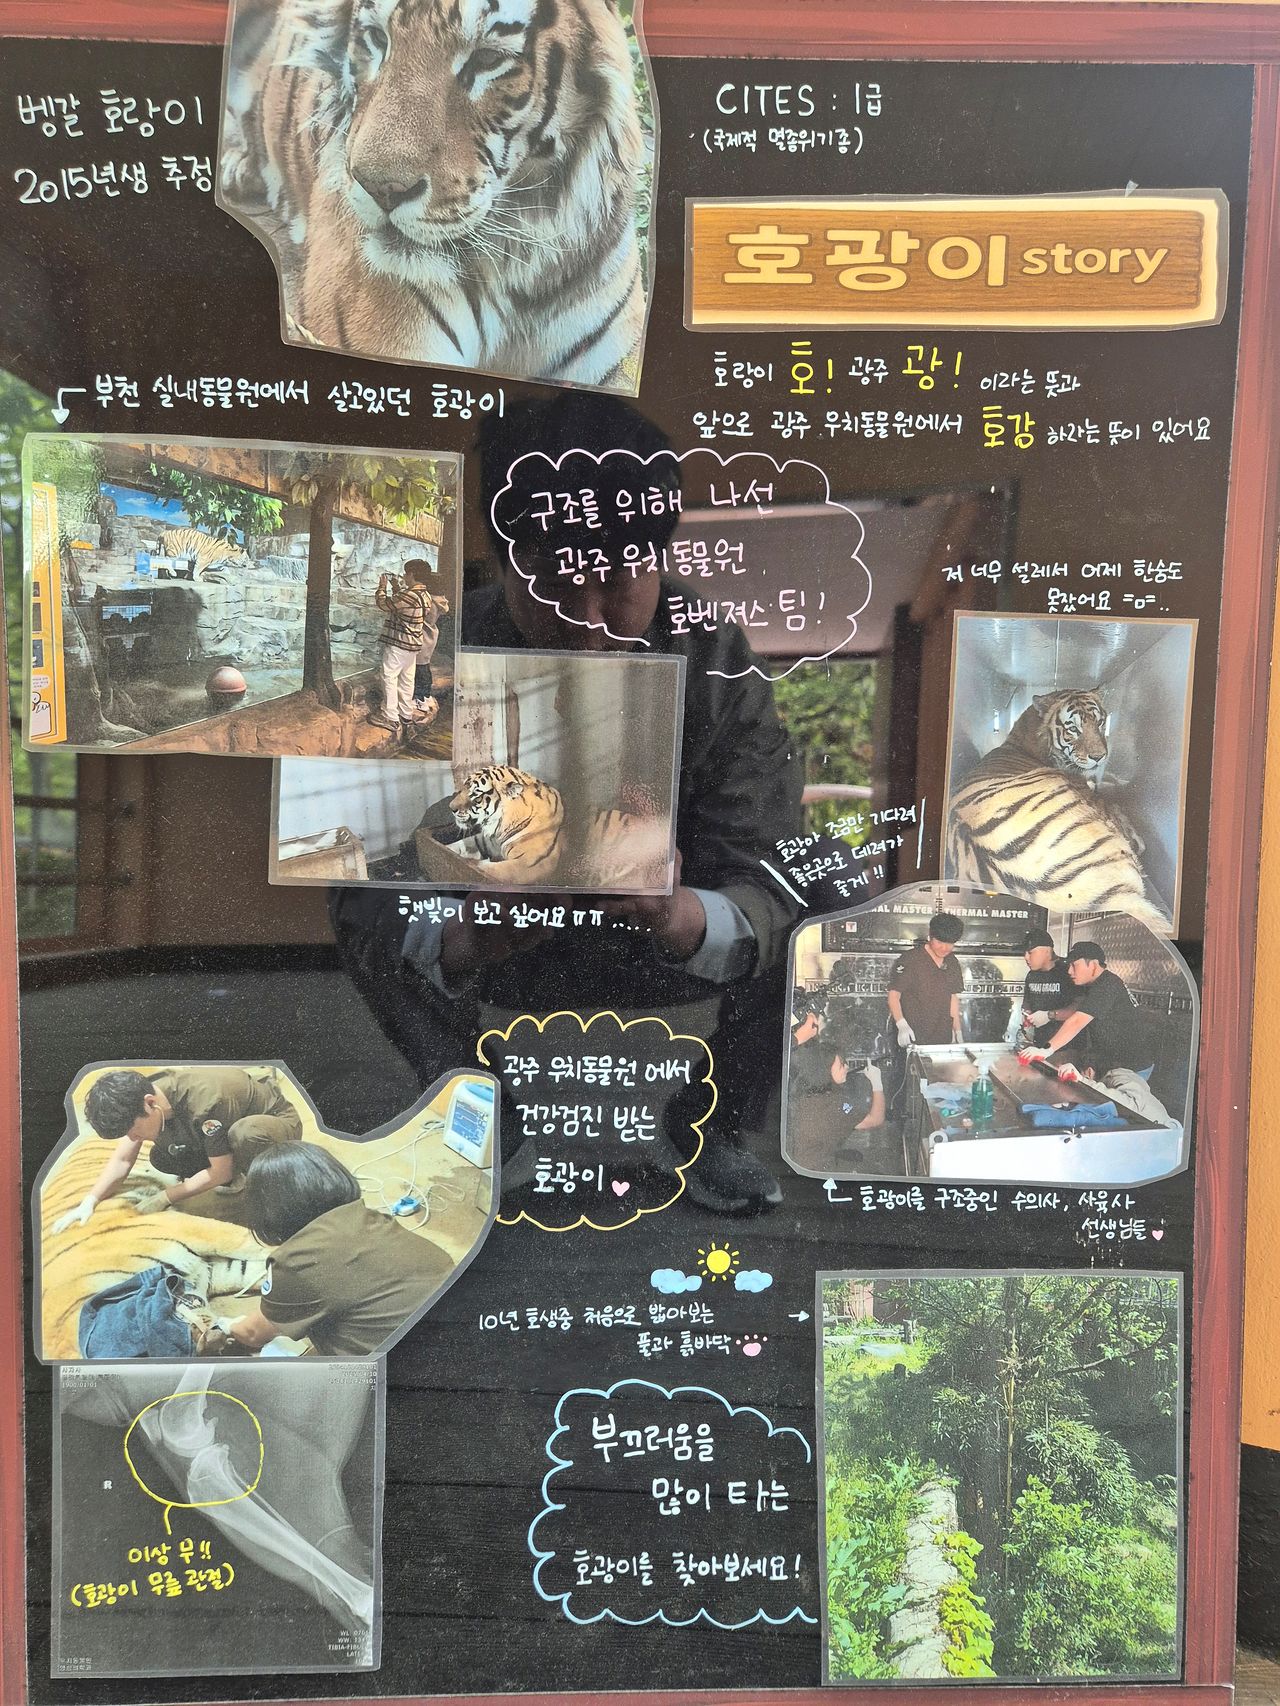 벵갈 호랑이
2015년생 추정
CITES : 1급
(국제적 멸종위기종)
호광이 story
호랑이 호! 광주 광! 이라는 뜻과
앞으로 광주 우치동물원에서 호강 하라는 뜻이 있어요
부천 실내동물원에서 살고있던 호광이
구조를 위해 나선
광주 우치동물원
호벤져스 팀!
저 너무 설레서 어제 한숨도
못잤어요 =ㅁ=..
햇빛이 보고 싶어요 ㅠㅠ.....
호광아 조금만 기다려
좋은곳으로 데려가
줄게!!
THERMAL MASTER
호광이를 구조중인 수의사, 사육사
선생님들
광주 우치동물원에서
건강검진 받는
호광이
10년 호생중 처음으로 밟아보는
풀과 흙바닥
R
이상 무!!
(호광이 무릎 관절)
부끄러움을
많이 타는
호광이를 찾아보세요!